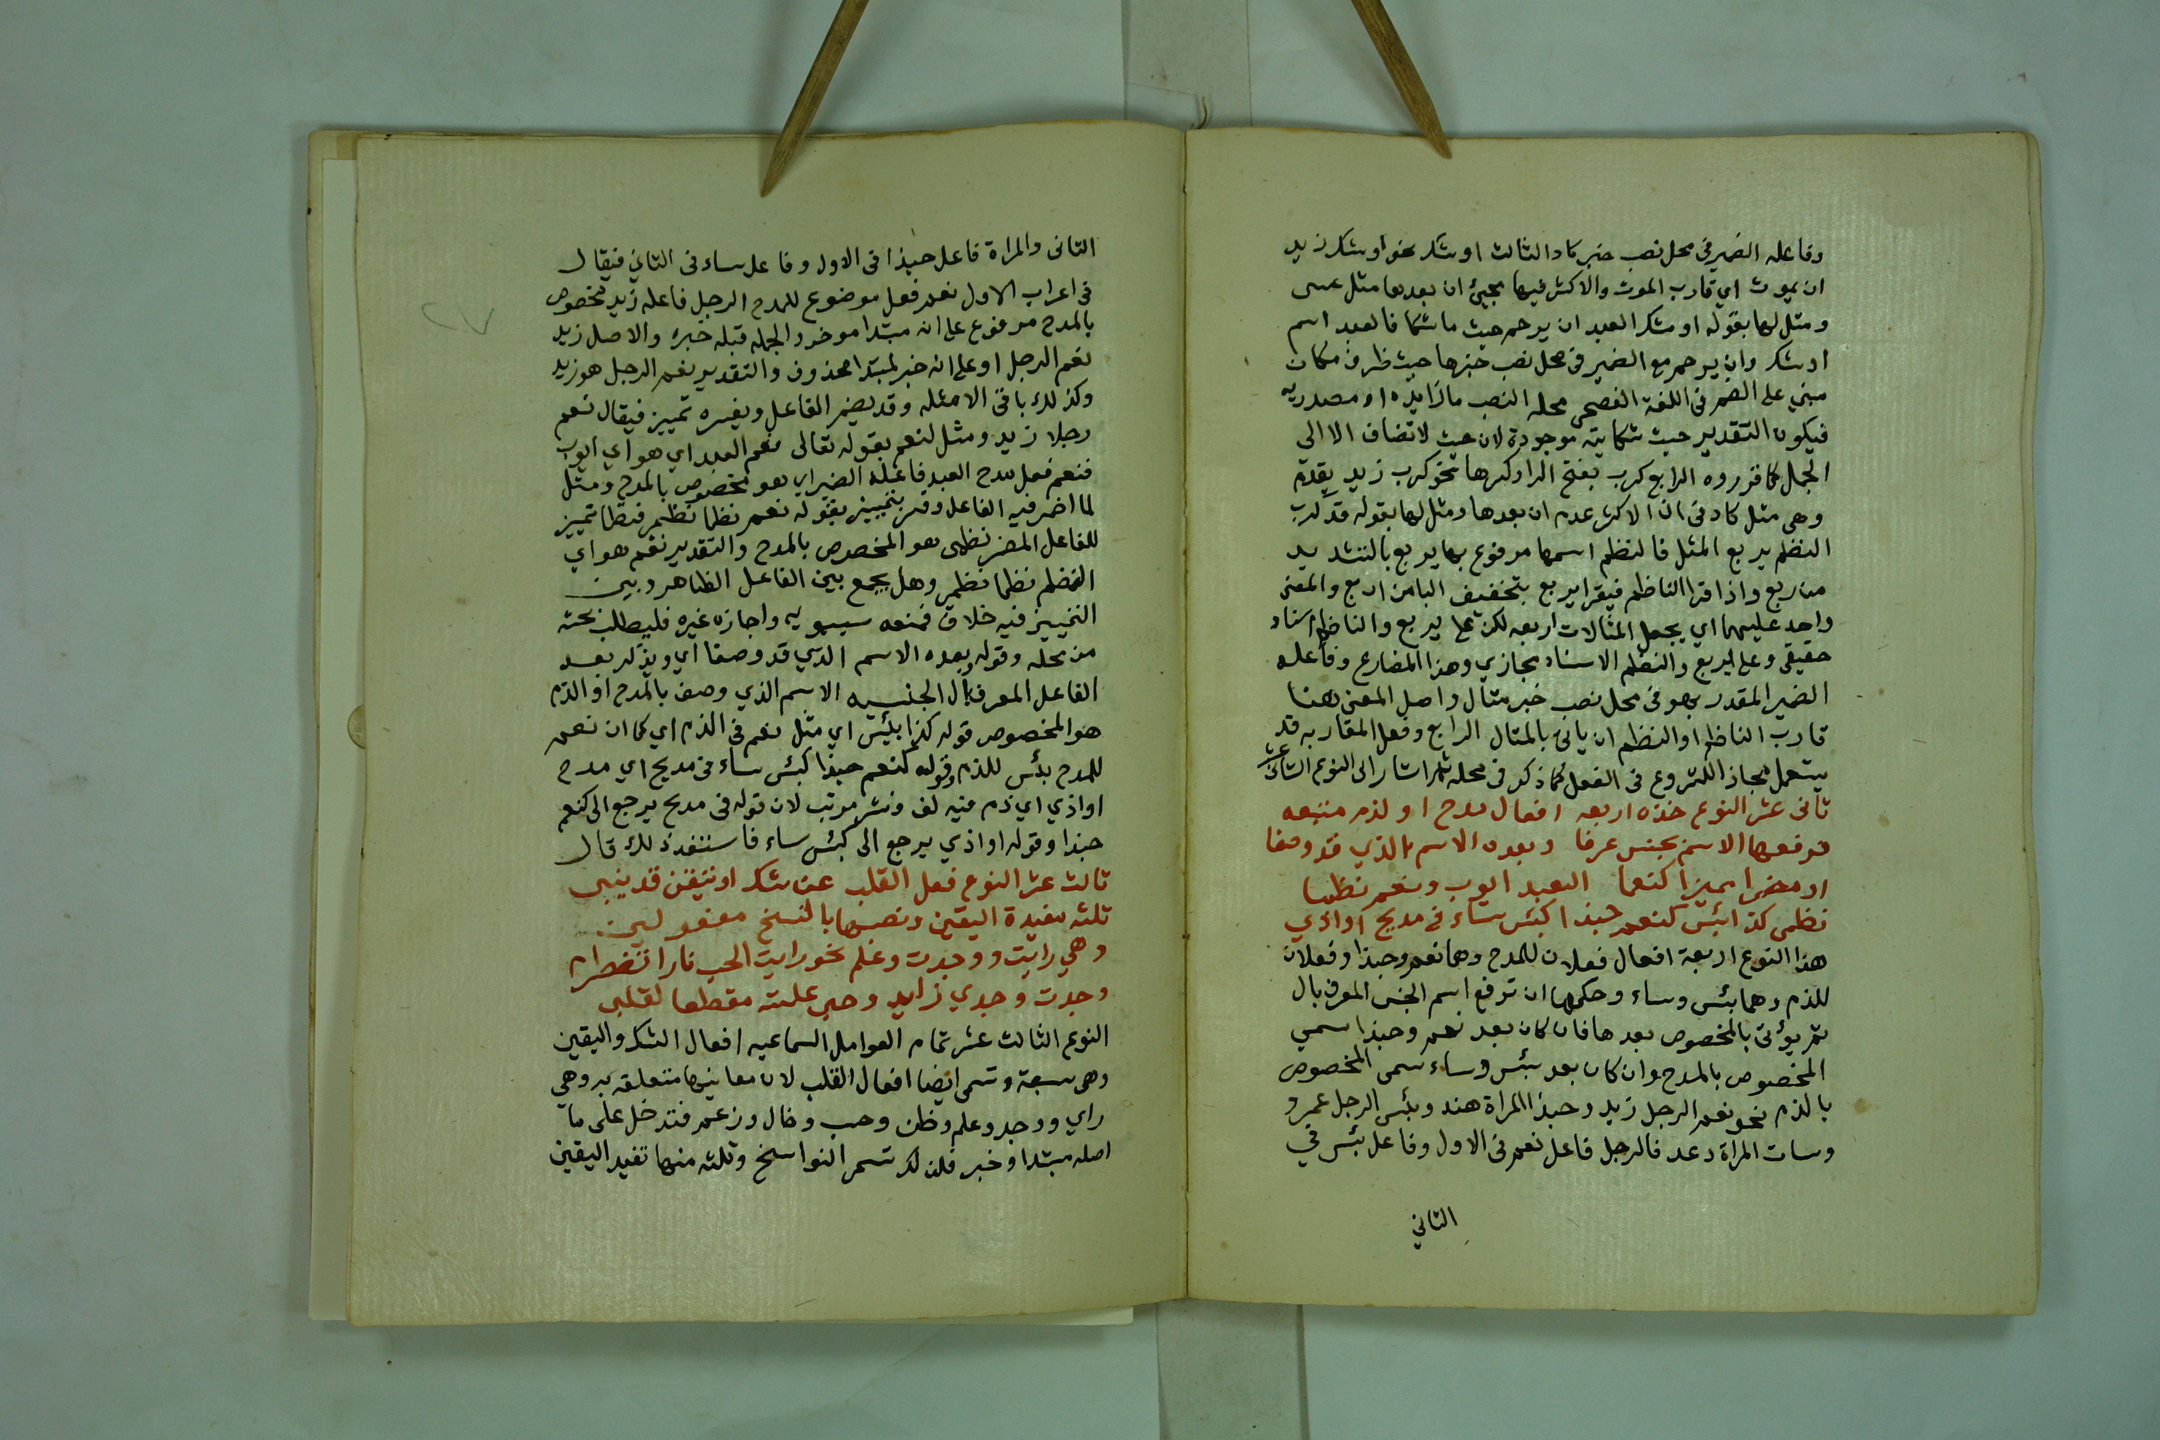 وفاعله الضمير في محل نصب خبر كاد الثالث اوشك نحو اوشك زيد
ان يموت اي قارب الموت والاكثر فيها مجيئ ان بعدها مثل عسى
ومثل لها بقوله اوشك العبد ان يرحم حيث ما شكا فالعبد اسم
اوشك وان يرحم مع الضمير في محل نصب خبرها حيث ظرف مكان
مبني على الضم في اللغة الفصحى محله النصب ما زايده او مصدريه
فيكون التقدير حيث شكايته موجودة لان حيث لا تضاف الا الى
الجمل كما قرروه الرابع كرب بفتح الرا وكسرها نحو كرب زيد يقدم
وهى مثل كاد فى ان الاكثر عدم ان بعدها ومثل لها بقوله قد كرب
النظم يربع المثل فالنظم اسمها مرفوع بها يربع بالتشديد
من ربع واذا قرا الناظم فيقرا يربع بتخفيف البا من اربع والمعنى
واحد عليهما اي يجعل المثالات اربعه لكن على يربع والناظم اسناد
حقيقي وعلى يربع والنظم الاسناد مجازي وهذا المضارع وفاعله
الضمير المقدر بهو فى محل نصب خبر مثال واصل المعنى هنا
قارب الناظم او النظم ان ياتى بالمثال الرابع وفعل المقاربه قد
يستعمل مجاز اللشروع فى الفعل كما ذكر فى محله ثم اشار الى النوع الثانى عشر
ثانى عشر النوع خذه اربعه افعال مدح او لذم متبعه
فرفعها الاسم بجنس عرفا وبعده الاسم الذي قد وصفا
او مضمرا ميزا كنعما العبد ايوب ونعم نظما
نظمى كذا بئس كنعم حبذا كبئس ساء فى مديح او اذي
هذا النوع اربعة افعال فعلان للمدح وهما نعم وحبذا وفعلان
للذم وهما بئس وساء وحكمها ان ترفع اسم الجنس المعرف بال
ثم يؤتى بالمخصوص بعدها فان كان بعد نعم وحبذا سمي
المخصوص بالمدح وان كان بعد بئس وساء سمى المخصوص
بالذم نحو نعم الرجل زيد وحبذا المراة هند وبئس الرجل عمرو
وسات المراة دعد فالرجل فاعل نعم فى الاول وفاعل بئس في
الثاني
الثانى والمراة فاعل حبذا فى الاول وفاعل ساء فى الثانى فيقال
فى اعراب الاول نعم فعل موضوع للمدح الرجل فاعله زيد مخصوص
بالمدح مرفوع على انه مبتدا موخر والجمله قبله خبره والاصل زيد
نعم الرجل او على انه خبر لمبتدا محذوف والتقدير نعم الرجل هو زيد
وكذلك باقى الامثله وقد يضمر الفاعل ويفسره تمييز فيقال نعم
رجلا زيد ومثل لنعم بقوله تعالى نعم العبد اي هو اي ايوب
فنعم فعل مدح العبد فاعله الضمير اي هو مخصوص بالمدح ومثل
لما اضمر فيه الفاعل وفسر بتمييز بقوله نعم نظما نظمى فنظما تمييز
للفاعل المضمر نظمى هو المخصوص بالمدح والتقدير نعم هو اي
النظم نظما نظمى وهل يجمع بين الفاعل الظاهر وبين
التمييز فيه خلاف فمنعه سيبويه واجازه غيره فليطلب بحثه
من محله وقوله وبعده الاسم الذي قد وصفا اي ويذكر بعد
الفاعل المعرف بال الجنسيه الاسم الذي وصف بالمدح او الذم
هو المخصوص قوله كذا بئس اي مثل نعم فى الذم اي كما ان نعم
للمدح بئس للذم وقوله كنعم حبذا كبئس ساء فى مديح اي مدح
او اذي اي ذم فيه لف ونشر مرتب لان قوله فى مديح يرجع الى كنعم
حبذا وقوله او اذي يرجع الى كبئس ساء فاستفد ذلك قال
ثالث عشر النوع فعل القلب عن شك او تيقن قد ينبى
ثلثه مفيدة اليقين ونصبها بالنسخ مفعولين
وهي رايت ووجدت وعلم نحو رايت الحب نارا تضطرم
وجدت وجدي زايد وحبى علمته مقطعا لقلبى
النوع الثالث عشر تمام العوامل السماعيه افعال الشك واليقين
وهى سبعة وتسمى ايضا افعال القلب لان معانيها متعلقه به وهي
راي ووجد وعلم وظن وحسب وخال وزعم فتدخل على ما
اصله مبتدا وخبر فلذلك تسمى النواسخ وثلثه منها تفيد اليقين